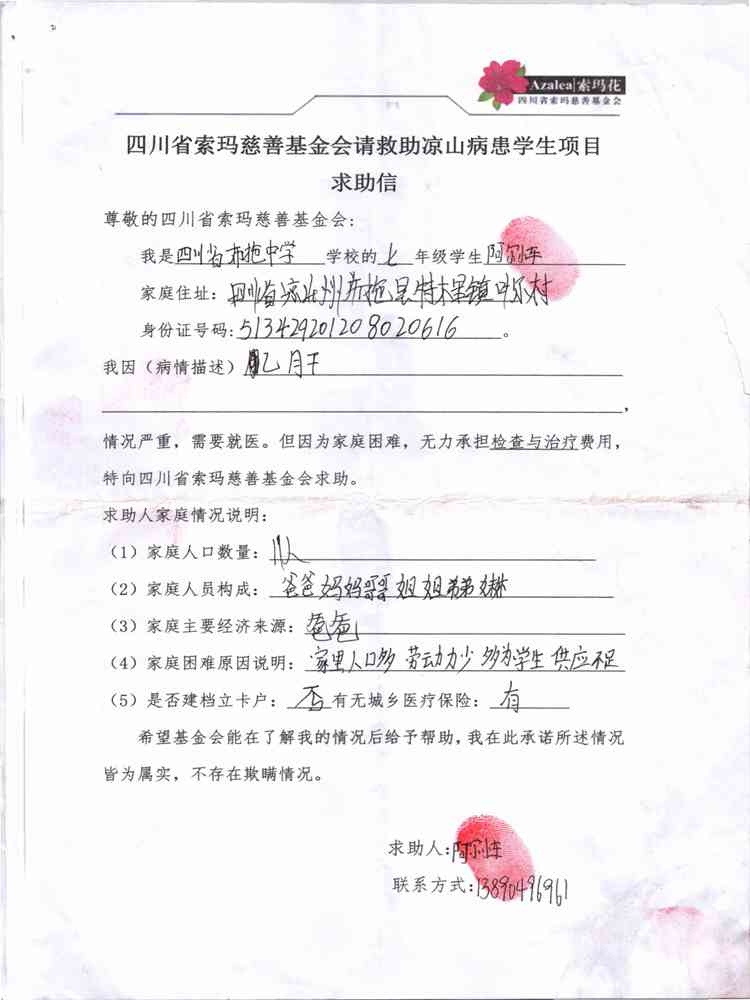 Azalea|索玛花
四川省索玛慈善基金会
四川省索玛慈善基金会请救助凉山病患学生项目
求助信
尊敬的四川省索玛慈善基金会:
我是四川省布拖中学 学校的七 年级学生阿尔
家庭住址: 四川省凉山州布拖县特木里镇 村
身份证号码:513429201208020616 。
我因(病情描述) 乙肝
,
情况严重,需要就医。但因为家庭困难,无力承担检查与治疗费用,
特向四川省索玛慈善基金会求助。
求助人家庭情况说明:
(1)家庭人口数量: 人
(2)家庭人员构成: 爸爸妈妈哥哥姐姐弟弟
(3)家庭主要经济来源:爸爸
(4)家庭困难原因说明: 家里人口多 劳动力少 多为学生 供应不足
(5)是否建档立卡户: 否 有无城乡医疗保险: 有
希望基金会能在了解我的情况后给予帮助,我在此承诺所述情况
皆为属实,不存在欺瞒情况。
求助人:阿尔
联系方式:13890496961